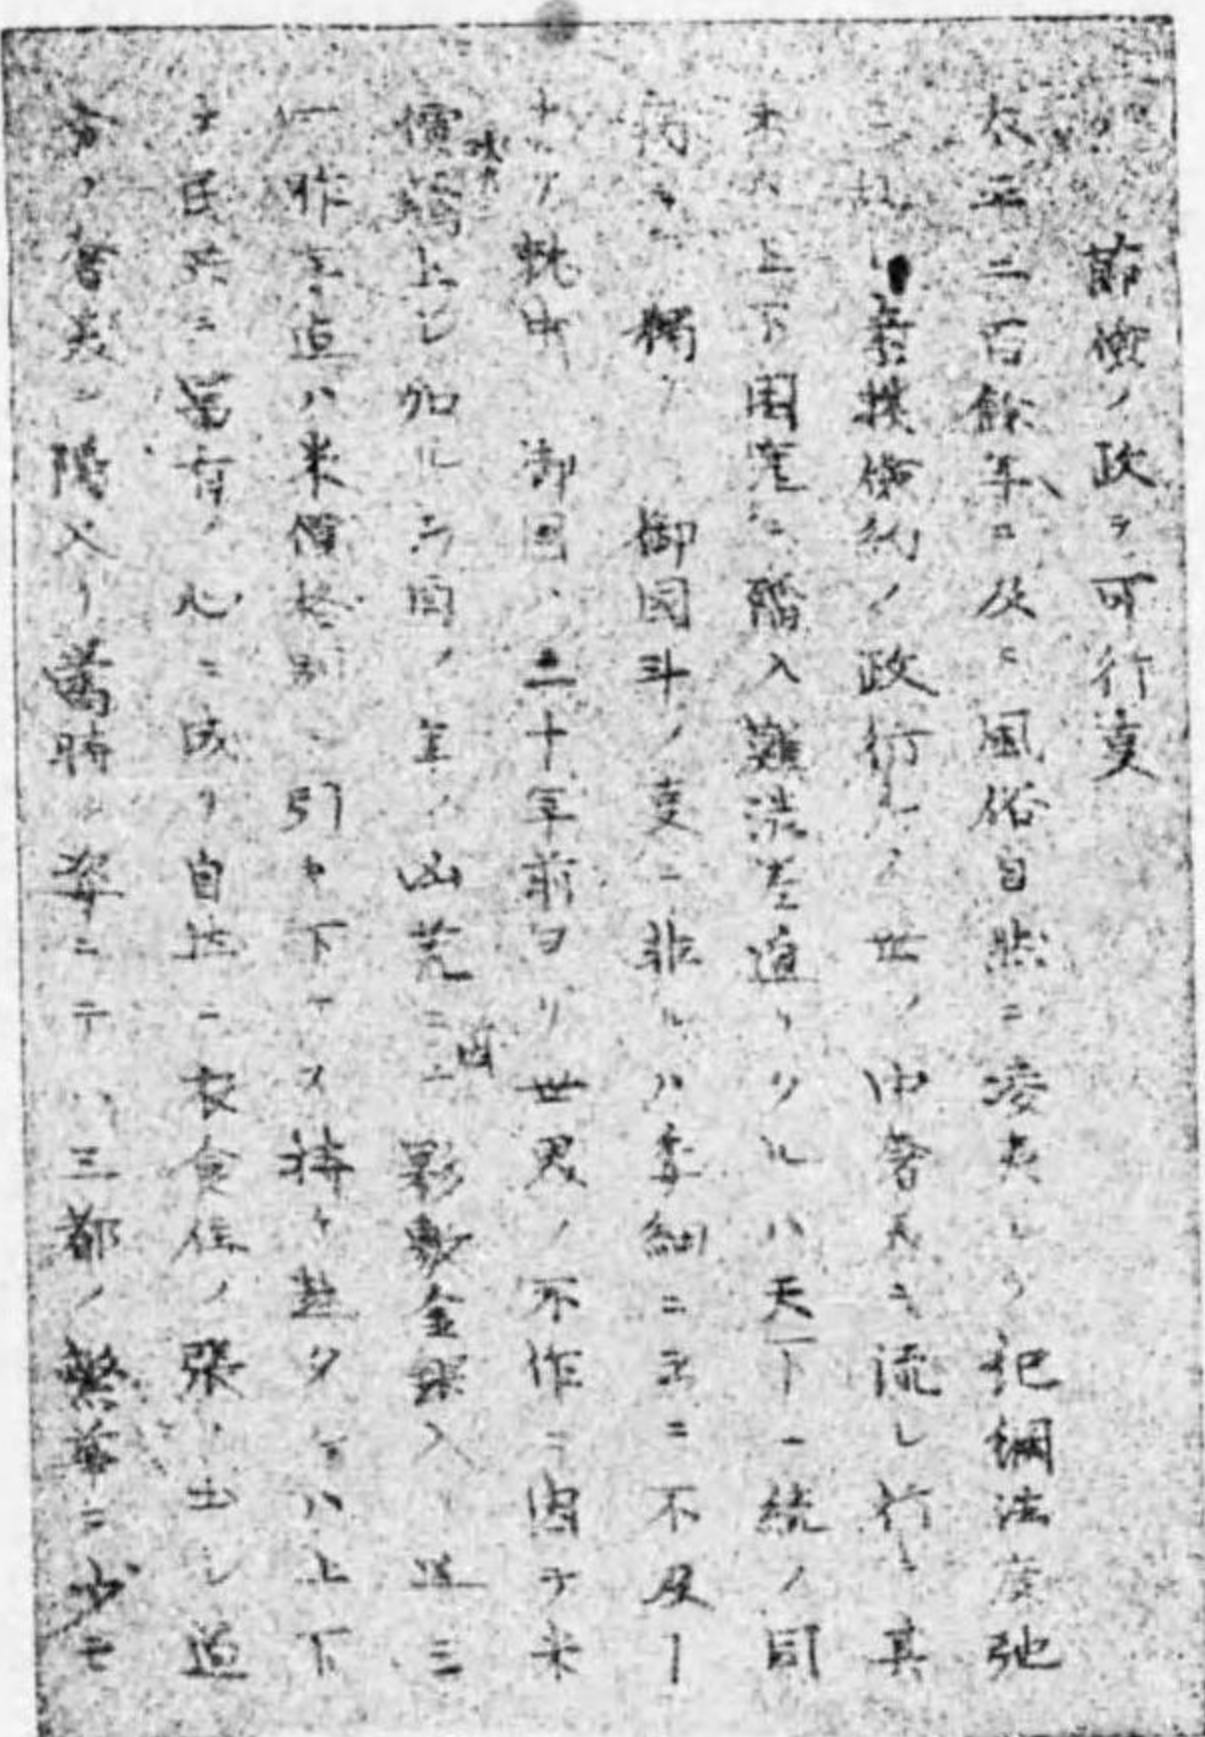 節儉ノ政ヲ可行叓
太平二百餘年ニ及ヒ風俗自然ニ凌夷シテ紀綱法度弛
質撲儉約ノ政行レス世ノ中奢美ニ流レ行キ其
末ハ上下困窮ニ陷入難渋差迫リタルハ天下一統ノ同
病ニ 獨リ 御國斗ノ叓ニ非ルハ委細ニ云ニ不及ー
ナリ就中 御國ハ二十年前ヨリ世界ノ不作ニ因テ米
價騰上シ加ルニ両ノ年ノ凶荒ニ 夥敷金銀入リ 三
作年迠ハ米價格別ニ引キ下ケス持チ甦タ ハ上下
士民共ニ冨有ノ心ニ成リ自然ニ衣食住ノ張リ出シ過
分ノ奢美ニ陷入リ當時ノ姿ニテハ三都ノ繁華ニ少モ